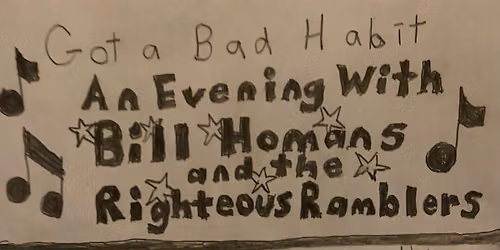 Got a Bad Habit
An Evening With
Bill Homans
and the
Righteous Ramblers